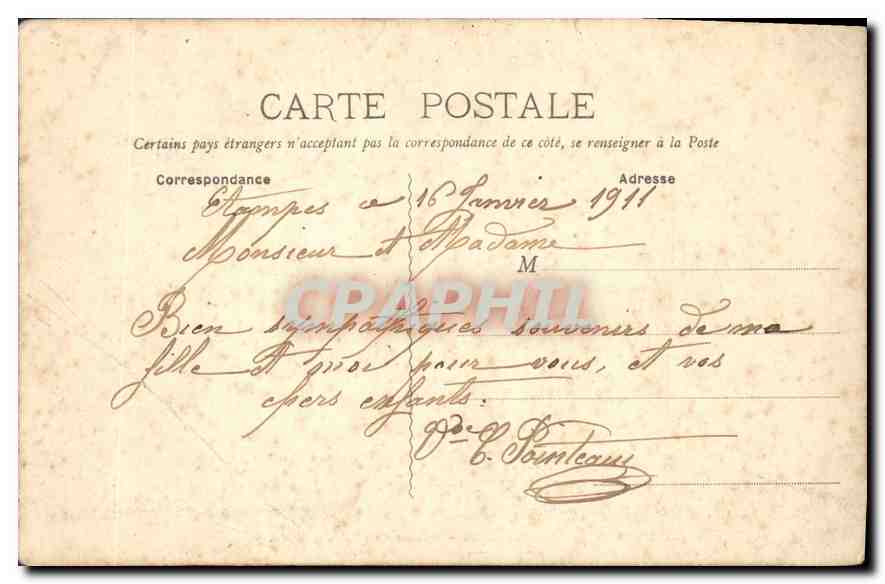 CARTE POSTALE
Certains pays étrangers n'acceptent pas la correspondance de ce côté, se renseigner à la Poste
Correspondance
Adresse
Etampes ce 16 Janvier 1911
Monsieur et Madame
M
CPAPHIL
Bien sympathiques souvenirs de ma
fille et moi pour vous, et vos
chers enfants.
Vve C. Pointeau